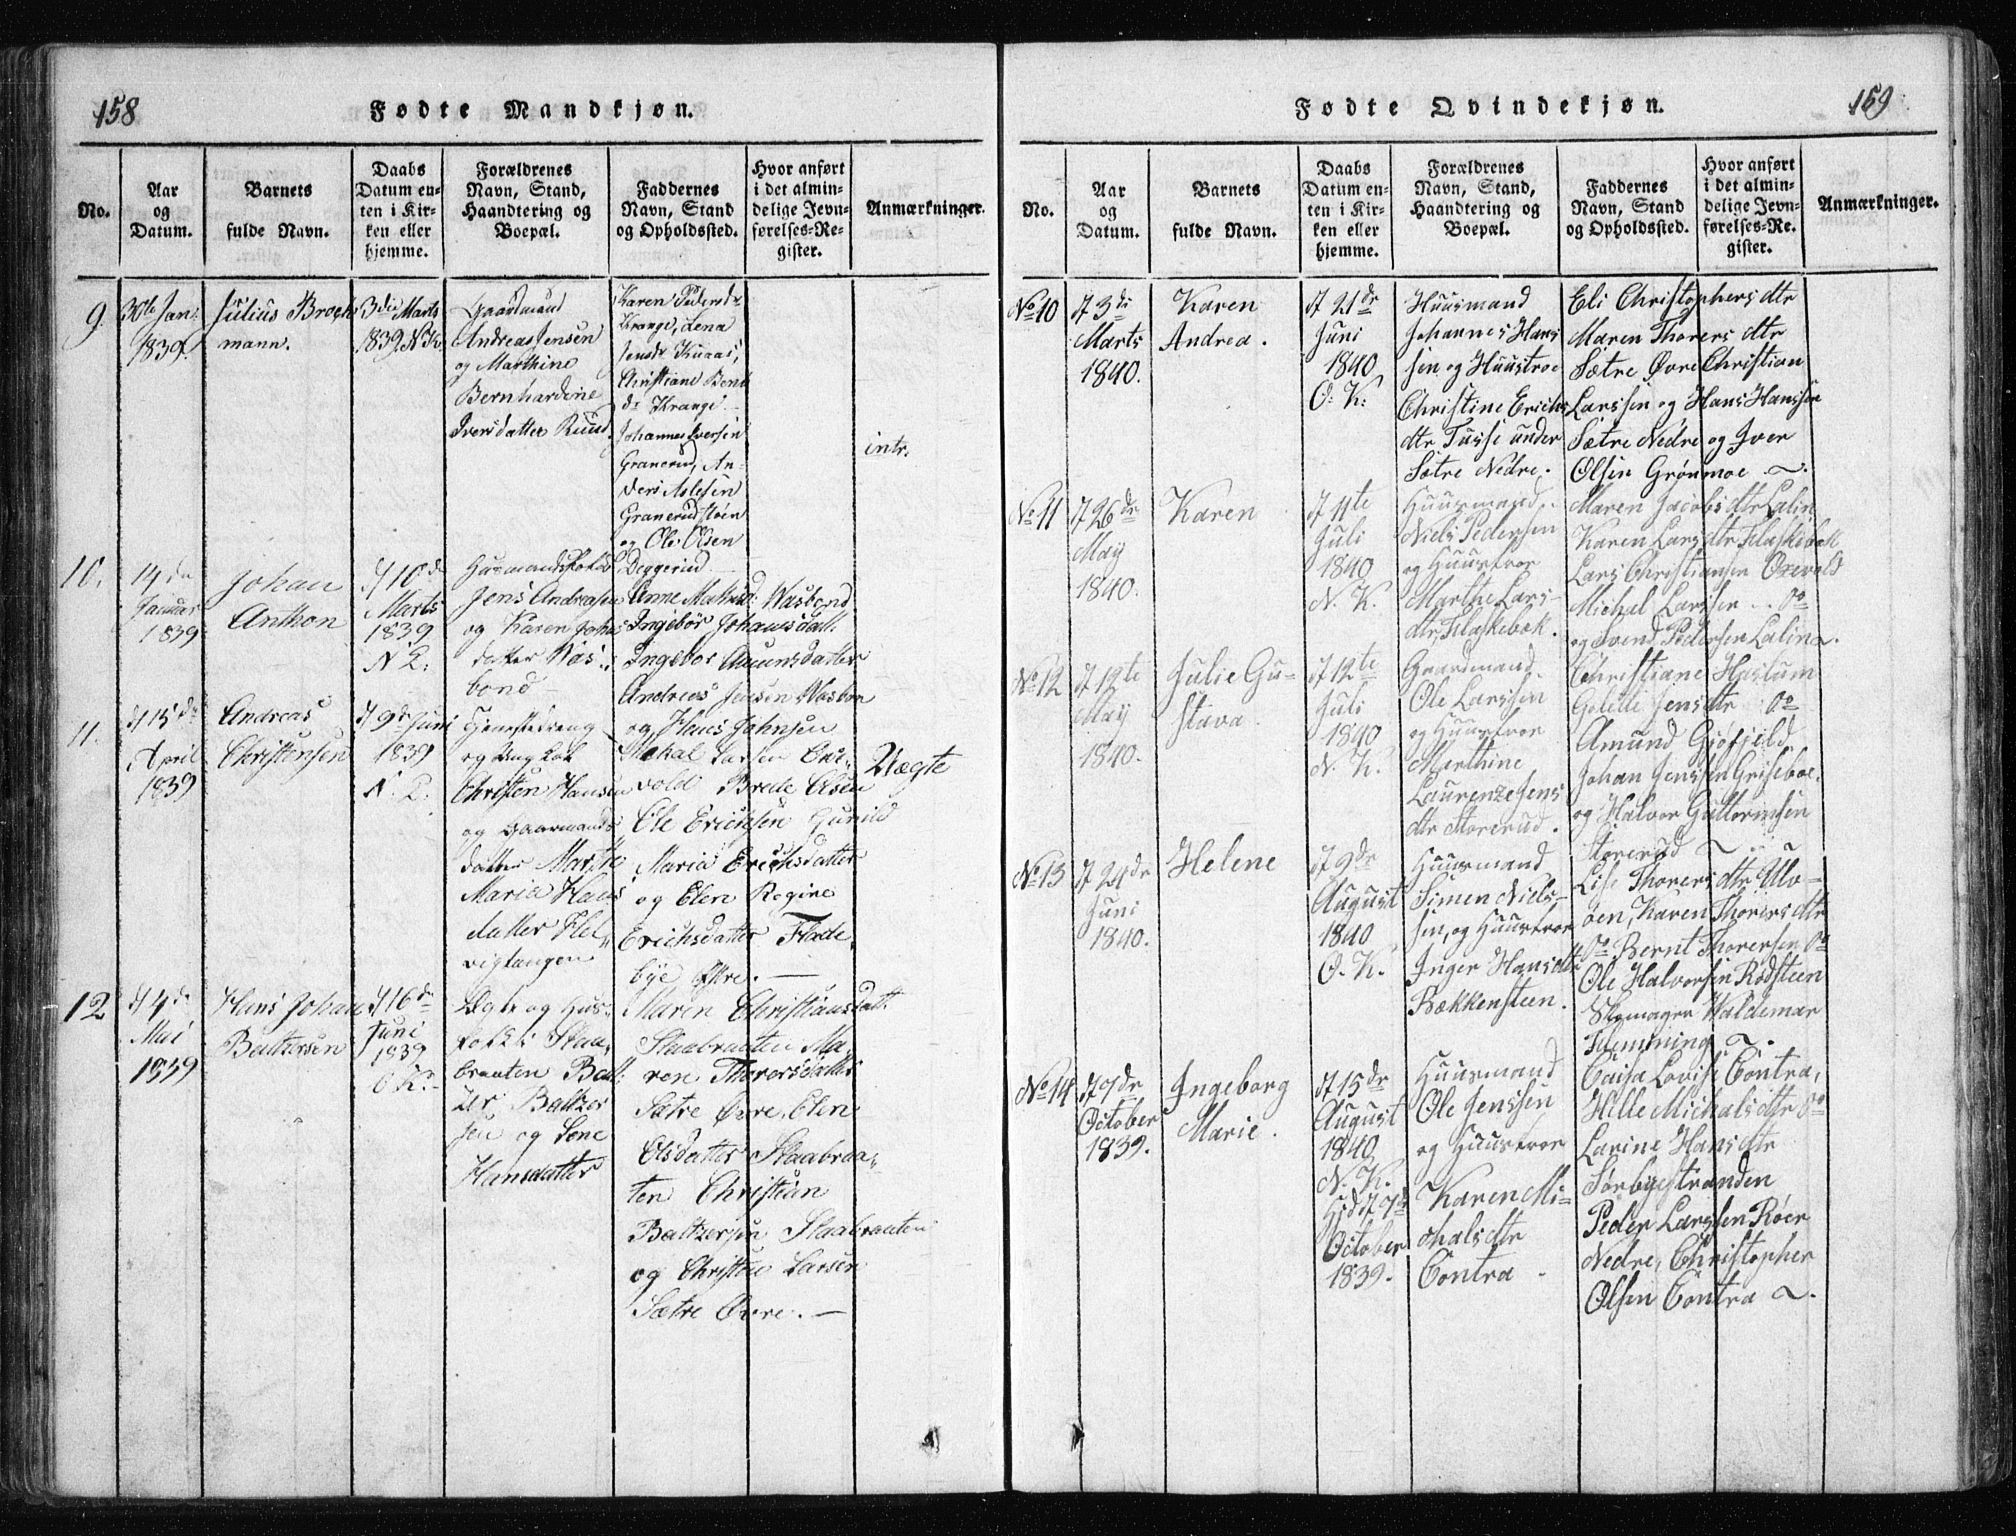 158
Fødte Mandkjøn.
No.
Aar
og
Datum.
Barnets
fulde Navn.
Daabs
Datum en-
ten i Kir-
ken eller
hjemme.
Forældrenes
Navn, Stand,
Haandtering og
Boepæl.
Faddernes
Navn, Stand
og Opholdssted.
Hvor anført
i det almin-
delige Jevn-
førelses-Re-
gister.
Anmærkninger.
9.
30te Jan:
1839.
Julius Broch
mann.
3die Marts
1839. N.K.
Gaardmand
Andreas Jensen
og Marthine
Bernhardine
Iversdatter Ruud
Karen Pedersdr
Krange, Lena
Jensdr
Christiane Bent
dr Krange
Johannes Iversen
Granerud, An-
ders Aslesen
Granerudstøen
og Ole Olsen
Deggerud
intr.
10.
14de
Januar
1839
Johan
Anthon
d 10de
Marts
1839
N K.
Husmandsfolk
Jens Andreasen
og Karen Johns
datter Was-
bond
Anne Wasbond
Ingebor Johansdatt.
Ingebor Amunsdatter
Andreas Jensen Wasbon
og Hans Johnsen
11.
d 15de
April
1839
Andreas
Christensen
d 9de Juni
1839
N. K.
Tjenestedreng
og Ungkal
Christen Hansen
og Gaarmands
datter Marthe
Maria Hans
datter Hel-
vigtangen
Mekal Larsen Ore-
vold Brede Olsen
Ole Erichsen Gunild
Maria Erichsdatter
og Elen Regine
Erichsdatter Flade-
bye Øfre.
Uægte
12
d 4de
Mai
1839
Hans Johan
Baltzersen
d 16de
Juni
1839
O K.
Ægte og Hus-
folk Staa-
braaten Balt-
zer Baltzer
sen og Lene
Hansdatter
Maren Christiansdatt.
Staabraaten Ma-
ren Thorersdatter
Sætre Øvre, Elen
Elsdatter Staabraa-
ten Christian
Baltzersen Staabraaten
og Christian Larsen
Sætre Øvre.
159
Fødte Qvindekjøn.
No.
Aar
og
Datum.
Barnets
fulde Navn.
Daabs
Datum en-
ten i Kir-
ken eller
hjemme.
Forældrenes
Navn, Stand,
Haandtering og
Boepæl.
Faddernes
Navn, Stand
og Opholdssted.
Hvor anført
i det almin-
delige Jevn-
førelses-Re.
gister.
Anmærkninger.
No 10
d 3di
Marts
1840.
Karen
Andrea.
d 21de
Juni
1840
O. K.
Huusmand
Johannes Hans
sen og Huustroe
Christine Erichs
dtr Tusse under
Sætre Nedre.
Eli Christophersdtr
Maren Thorersdtr
Sætre Øvre Christian
Larssen og Hans Hanssen
Sætre Nedre og Iver
Olsen Grønmoe
No 11
d 26de
May
1840.
Karen
d 11te
Juli
1840
N. K.
Huusmand
Niels Pedersen
og Huustroe
Marthe Lars-
dtr, Flaskebæk.
Maren Jacobsdtr Lalin
Karen Larsdtr Flaskebæk
Lars Christiansen Orevold
Michal Larssen .. do
og Svend Pedersen Lalin
No 12
d 12te
May
1840.
Julie Gu-
stava.
d 12te
Juli
1840
N. K.
Gaardmand
Ole Larssen
og Huustroe
Marthine
Laurenze Jens
dtr Storerud.
Christiane Haslum
Goletti Jensdtr do
Amund Gjøfjeld
Johan Jenssen Griseboe.
og Halvor Guttormsen
Storerud
No 13
d 24de
Juni
1840.
Helene
d 9de
August
1840
O. K.
Huusmand
Simen Niels-
sen, og Huustroe
Inger Hansdtr
Bækkensteen.
Lise Thorersdtr Ulv-
øen, Karen Thorersdtr
do Bernt Thorersen do
Ole Halvorsen Rødsteen
Skomager Waldemar
Flemming
No 14
d 7de
October
1839.
Ingeborg
Marie.
d 15de
August
1840
N. K.
Hjd d 7de
October
1839.
Huusmand
Ole Jenssen
og Huustroe
Karen Mi-
chalsdtr
Contra.
Caisa Lovise Contra,
Helle Michalsdtr do
Larine Hansdtr
Sørbyestranden
Peder Larssen Røer
Nedre, Christopher
Olsen Contra